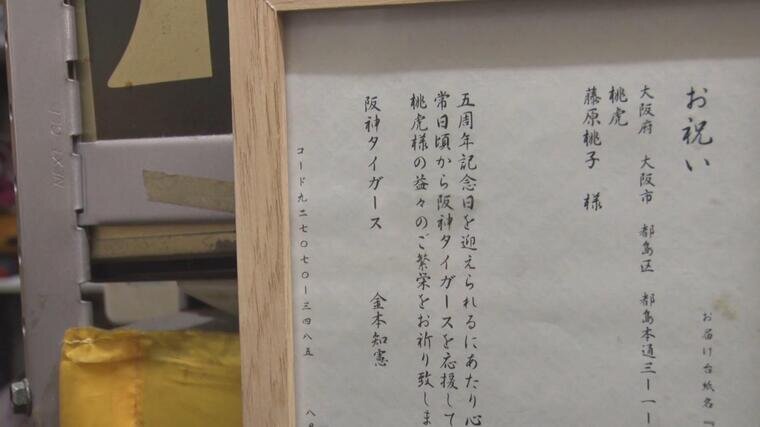 お届け台紙名『
お祝い
大阪府 大阪市 都島区 都島本通三ー一ー
桃虎
藤原桃子 様
五周年記念日を迎えられるにあたり心
常日頃から阪神タイガースを応援して
桃虎様の益々のご繁栄をお祈り致しま
阪神タイガース 金本知憲
コード九二七〇七〇ー三四八五